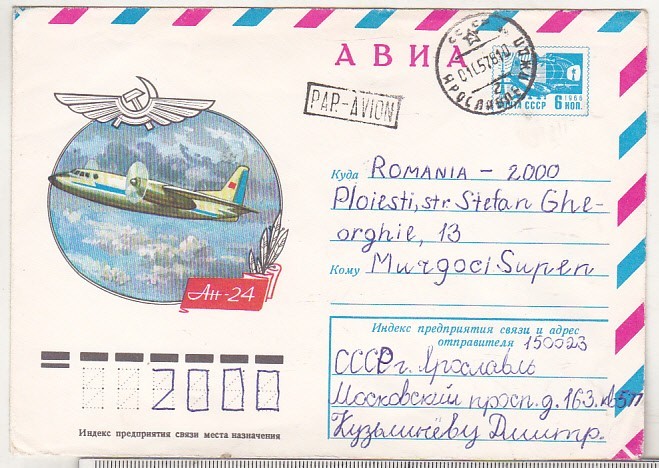 АВИА
PAR-AVION
ПОЧТА СССР
1966
6 КОП.
Куда ROMANIA - 2000
Ploiesti, str. Stefan Ghe-
orghie, 13
Кому Murgoci Supen
Ан-24
Индекс предприятия связи и адрес
отправителя 150023
СССР г. Ярославль
Московский просп. д. 163. кв
Кузьминёву Дмитр.
2000
Индекс предприятия связи места назначения